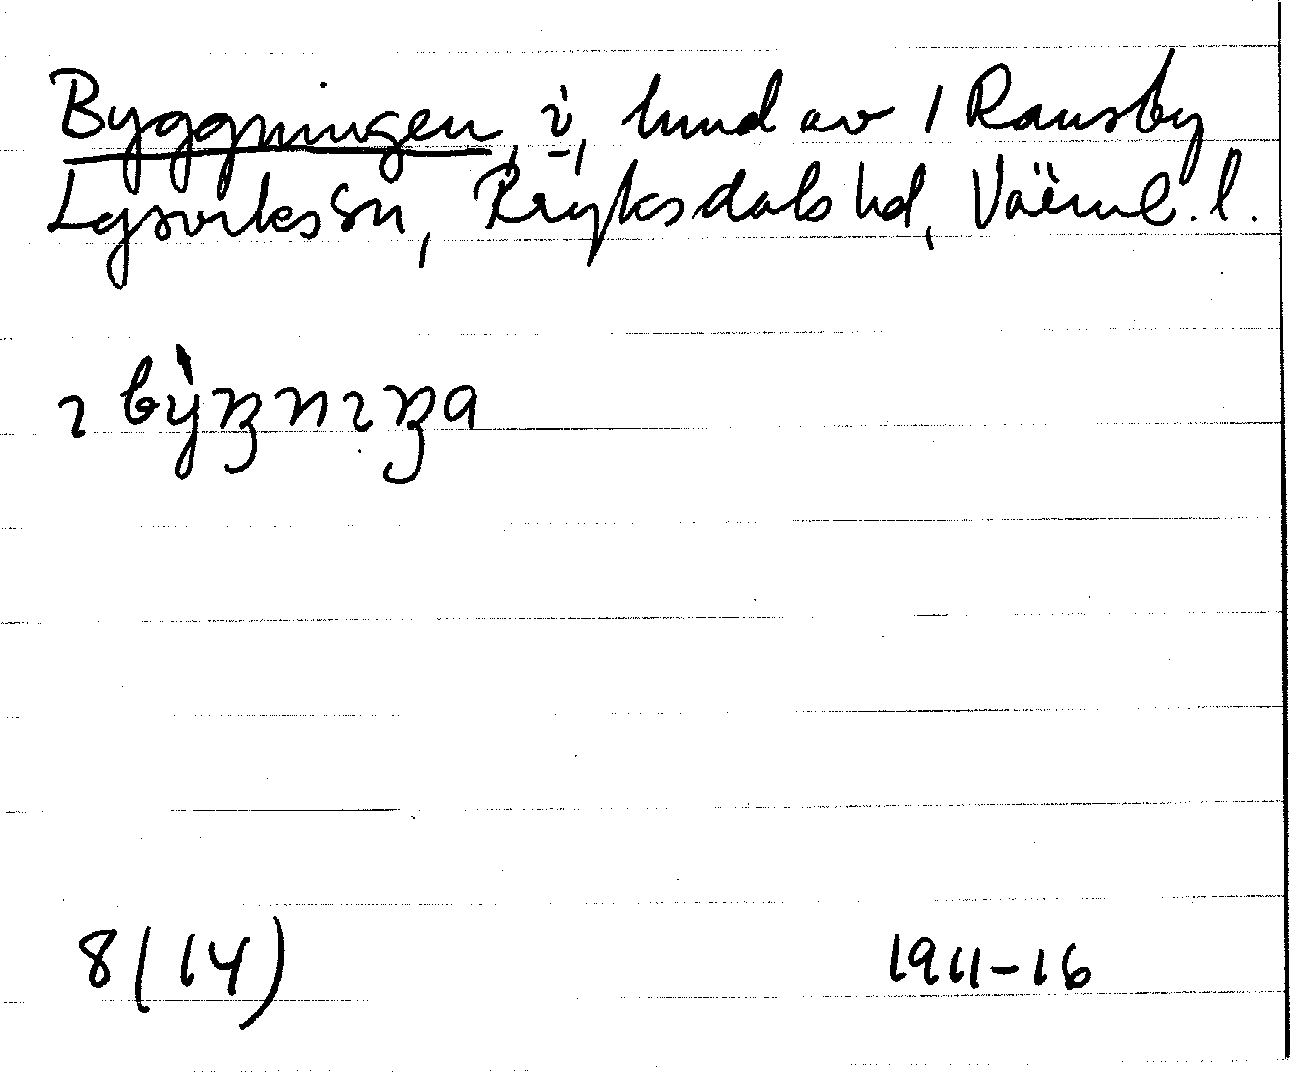 Byggningen, i, hmd av 1 Ransby
Lysvikssn, Fryksdals hd, Värml. l.
ɩ bỳŋnɩŋa
8(14)
1911-16